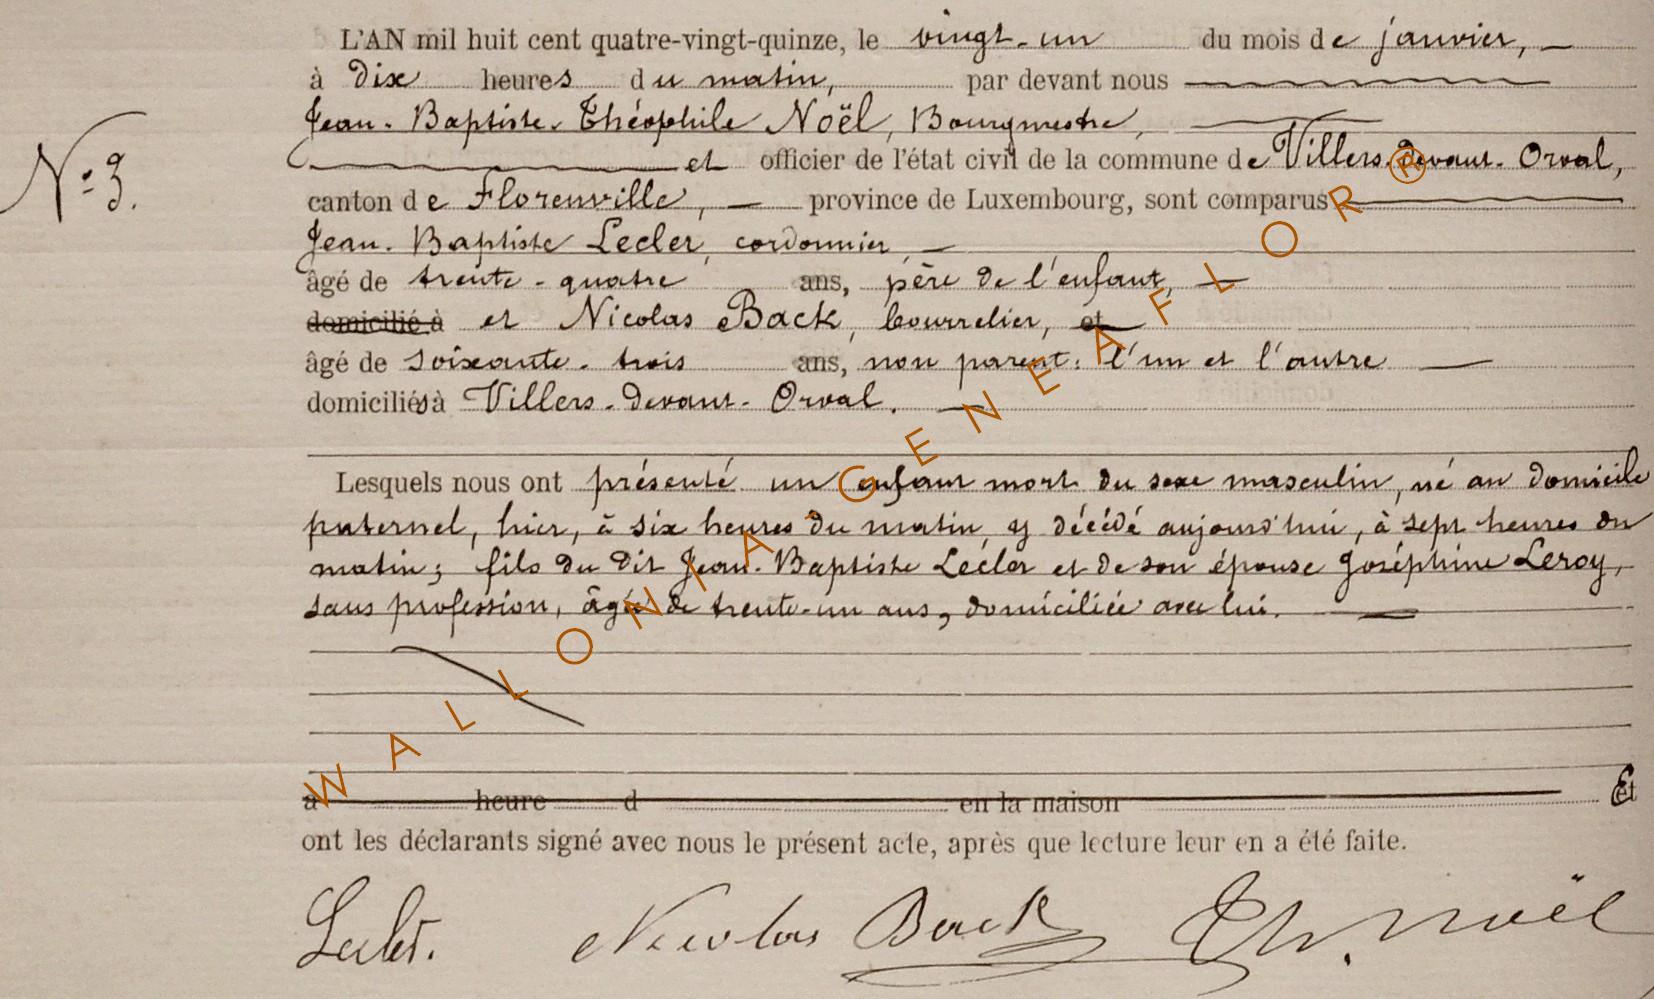 L'AN mil huit cent quatre-vingt-quinze, le vingt-un du mois de janvier,
à dix heures du matin, par devant nous
Jean-Baptiste-Théophile Noël, Bourgmestre,
et officier de l'état civil de la commune de Villers-devant-Orval,
N° 3.
canton de Florenville, province de Luxembourg, sont comparus
Jean-Baptiste Lecler, cordonnier,
âgé de trente-quatre ans, père de l'enfant,
domicilié à et Nicolas Back, bourrelier, et
âgé de soixante-trois ans, non parent: l'un et l'autre
domiciliés à Villers-devant-Orval.
Lesquels nous ont présenté un enfant mort du sexe masculin, né au domicile
paternel, hier, à six heures du matin, y décédé aujourd'hui, à sept heures du
matin; fils du dit Jean-Baptiste Lecler et de son épouse Joséphine Leroy,
sans profession, âgée de trente-un ans, domiciliée avec lui.
à heure d en la maison Et
ont les déclarants signé avec nous le présent acte, après que lecture leur en a été faite.
Nicolas Back Th. Noël
WALLONIA-GENEAFLOR®